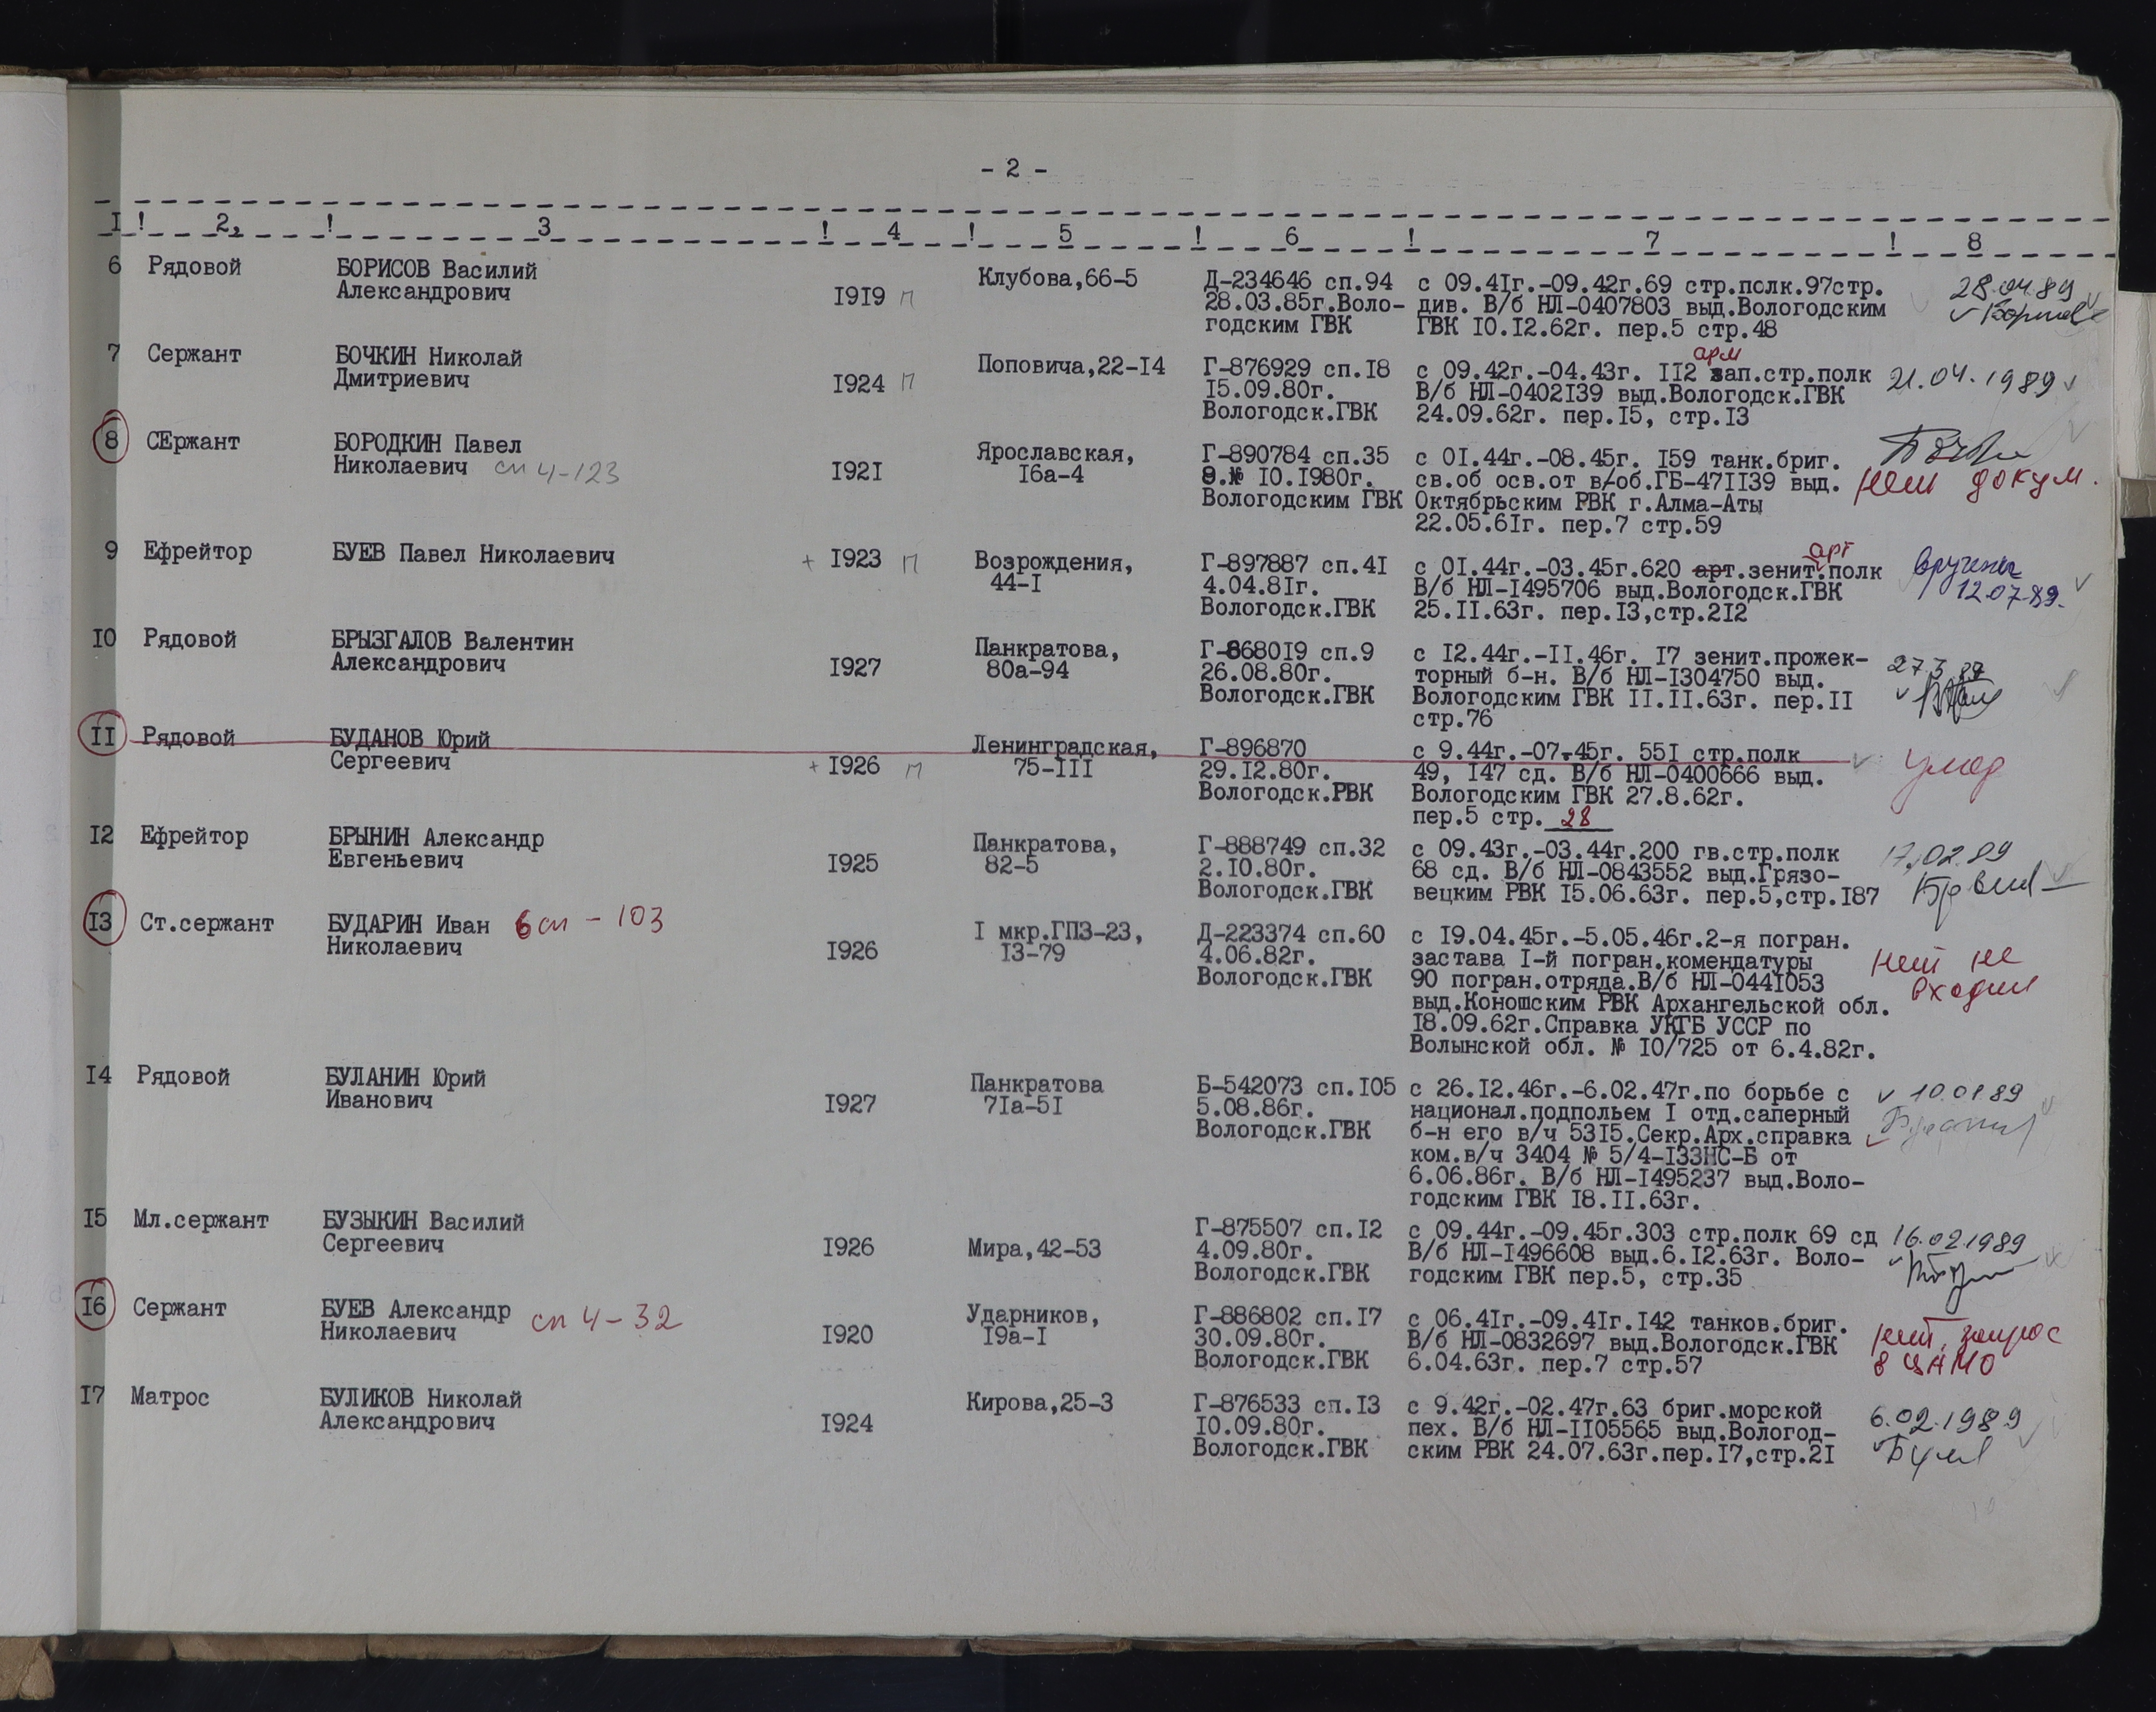 - 2 -
I ! 2, ! 3 ! 4 ! 5 ! 6 ! 7 ! 8
6 Рядовой БОРИСОВ Василий Александрович I9I9 п Клубова,66-5 Д-234646 сп.94 с 09.4Iг.-09.42г.69 стр.полк.97стр. 28.04.89
28.03.85г.Воло- див. В/б НЛ-0407803 выд.Вологодским
годским ГВК ГВК IО.I2.62г. пер.5 стр.48
7 Сержант БОЧКИН Николай Дмитриевич I924 п Поповича,22-I4 Г-876929 сп.I8 с 09.42г.-04.43г. II2 арм зап.стр.полк 21.04.1989
I5.09.80г. В/б НЛ-0402I39 выд.Вологодск.ГВК
Вологодск.ГВК 24.09.62г. пер.I5, стр.I3
8 СЕржант БОРОДКИН Павел Николаевич сп 4-123 I92I Ярославская, I6а-4 Г-890784 сп.35 с 0I.44г.-08.45г. I59 танк.бриг.
9.№ IО.I980г. св.об осв.от в/об.ГБ-47II39 выд. нет докум.
Вологодским ГВК Октябрьским РВК г.Алма-Аты
22.05.6Iг. пер.7 стр.59
9 Ефрейтор БУЕВ Павел Николаевич + I923 п Возрождения, 44-I Г-897887 сп.4I с 0I.44г.-03.45г.620 арт.зенит.арт полк вручены
4.04.8Iг. В/б НЛ-I495706 выд.Вологодск.ГВК 12.07.89.
Вологодск.ГВК 25.II.63г. пер.I3,стр.2I2
IО Рядовой БРЫЗГАЛОВ Валентин Александрович I927 Панкратова, 80а-94 Г-8680I9 сп.9 с I2.44г.-II.46г. I7 зенит.прожек-
26.08.80г. торный б-н. В/б НЛ-I304750 выд. 27.3.89
Вологодск.ГВК Вологодским ГВК II.II.63г. пер.II
стр.76
II Рядовой БУДАНОВ Юрий Сергеевич + I926 п Ленинградская, 75-III Г-896870 с 9.44г.-07.45г. 55I стр.полк умер
29.I2.80г. 49, I47 сд. В/б НЛ-0400666 выд.
Вологодск.РВК Вологодским ГВК 27.8.62г.
пер.5 стр. 28
I2 Ефрейтор БРЫНИН Александр Евгеньевич I925 Панкратова, 82-5 Г-888749 сп.32 с 09.43г.-03.44г.200 гв.стр.полк 17.02.89
2.IО.80г. 68 сд. В/б НЛ-0843552 выд.Грязо-
Вологодск.ГВК вецким РВК I5.06.63г. пер.5,стр.I87
I3 Ст.сержант БУДАРИН Иван Николаевич 6 сп - 103 I926 I мкр.ГПЗ-23, I3-79 Д-223374 сп.60 с I9.04.45г.-5.05.46г.2-я погран.
4.06.82г. застава I-й погран.комендатуры нет не
Вологодск.ГВК 90 погран.отряда.В/б НЛ-044I053 входил
выд.Коношским РВК Архангельской обл.
I8.09.62г.Справка УКГБ УССР по
Волынской обл. № IО/725 от 6.4.82г.
I4 Рядовой БУЛАНИН Юрий Иванович I927 Панкратова 7Iа-5I Б-542073 сп.I05 с 26.I2.46г.-6.02.47г.по борьбе с 10.01 89
5.08.86г. национал.подпольем I отд.саперный
Вологодск.ГВК б-н его в/ч 53I5.Секр.Арх.справка
ком.в/ч 3404 № 5/4-I33НС-Б от
6.06.86г. В/б НЛ-I495237 выд.Воло-
годским ГВК I8.II.63г.
I5 Мл.сержант БУЗЫКИН Василий Сергеевич I926 Мира,42-53 Г-875507 сп.I2 с 09.44г.-09.45г.303 стр.полк 69 сд 16.02.1989
4.09.80г. В/б НЛ-I496608 выд.6.I2.63г. Воло-
Вологодск.ГВК годским ГВК пер.5, стр.35
I6 Сержант БУЕВ Александр Николаевич сп 4-32 I920 Ударников, I9а-I Г-886802 сп.I7 с 06.4Iг.-09.4Iг.I42 танков.бриг.
30.09.80г. В/б НЛ-0832697 выд.Вологодск.ГВК нет, запрос
Вологодск.ГВК 6.04.63г. пер.7 стр.57 в ЦАМО
I7 Матрос БУЛИКОВ Николай Александрович I924 Кирова,25-3 Г-876533 сп.I3 с 9.42г.-02.47г.63 бриг.морской 6.02.1989
IО.09.80г. пех. В/б НЛ-II05565 выд.Вологод-
Вологодск.ГВК ским РВК 24.07.63г.пер.I7,стр.2I